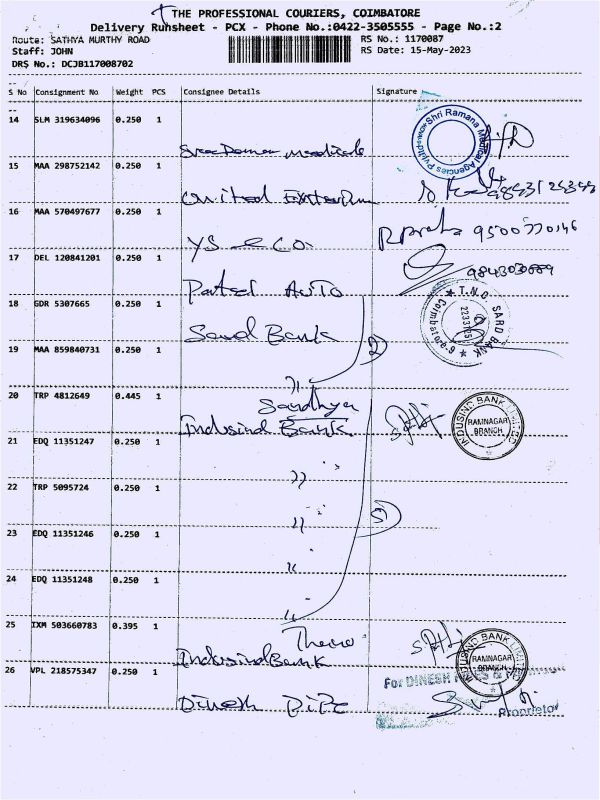 THE PROFESSIONAL COURIERS, COIMBATORE
Delivery Runsheet - PCX - Phone No.:0422-3505555 - Page No.:2
Route: SATHYA MURTHY ROAD
RS No.: 1170087
Staff: JOHN
RS Date: 15-May-2023
DRS No.: DCJB117008702
S No Consignment No Weight PCS Consignee Details Signature
14 SLM 319634096 0.250 1
Shri Ramana Medical Agencies
Sree Ramana Medicals
15 MAA 298752142 0.250 1
United
16 MAA 570497677 0.250 1
YS & CO. 9500770146
17 DEL 120841201 0.250 1
Patel Auto
18 GDR 5307665 0.250 1
T.N.O SARD BANK Coimbatore-9
Sard Bank
19 MAA 859840731 0.250 1
2
"
20 TRP 4812649 0.445 1
Sandhya
Indusind Bank
INDUSIND BANK LIMITED
RAMNAGAR
BRANCH
21 EDQ 11351247 0.250 1
"
22 TRP 5095724 0.250 1
5
"
23 EDQ 11351246 0.250 1
"
24 EDQ 11351248 0.250 1
"
25 IXM 503660783 0.395 1
Indusind Bank
INDUSIND BANK LIMITED
RAMNAGAR
BRANCH
26 VPL 218575347 0.250 1
For DINESH
Dinesh Pipe
Proprietor